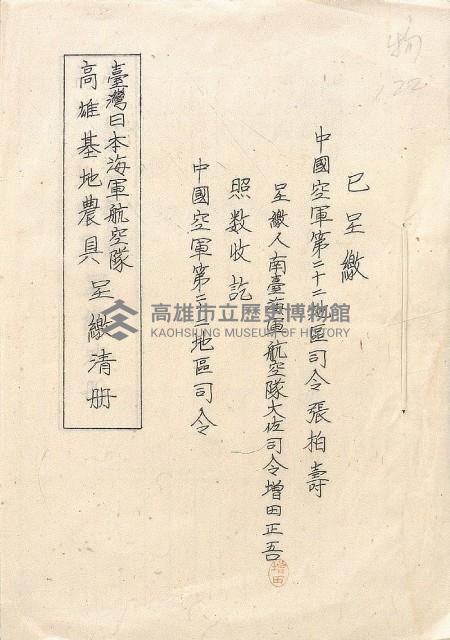 已呈繳
中國空軍第二十二地區司令張柏壽
呈繳人南臺海軍航空隊大佐司令增田正吾
增田
照数收訖
中國空軍第二十二地區司令
臺灣日本海軍航空隊
高雄基地農具 呈繳清册
高雄市立歷史博物館
KAOHSIUNG MUSEUM OF HISTORY
22